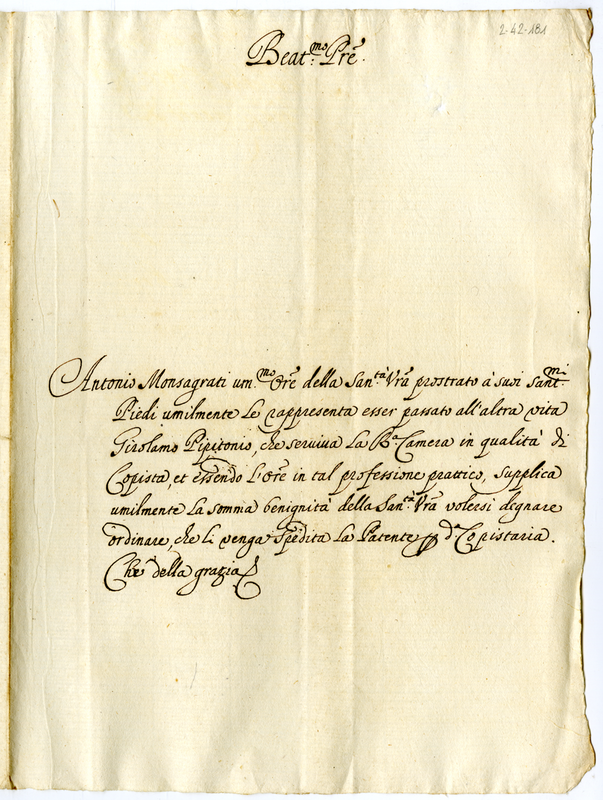 2·42·181
Beat.mo Prē.
Antonio Monsagrati um.mo Orē della San.tà Vrā prostrato à suoi Sant.mi
Piedi umilmente Le rappresenta esser passato all'altra vita
Girolamo Pipitonio, che serviva La R.a Camera in qualità di
Copista et essendo L'Orē in tal professione prattico, supplica
umilmente La somma benignità della San.tà Vrā volersi degnare
ordinare, che li venga spedita La Patente d.a Copistaria.
Che della grazia